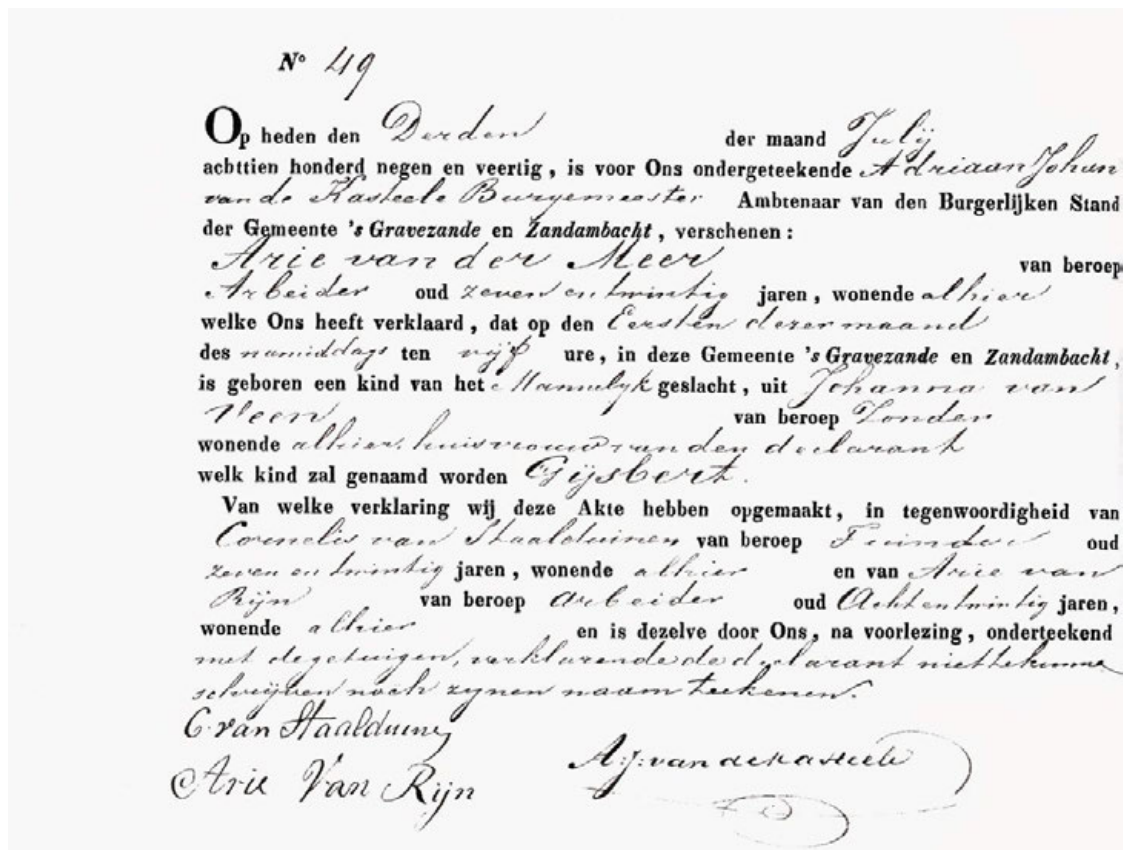 N° 49
Op heden den Derden der maand Julij
achttien honderd negen en veertig, is voor Ons ondergeteekende Adriaan Johan
van de Kasteele Burgemeester Ambtenaar van den Burgerlijken Stand
der Gemeente 's Gravezande en Zandambacht, verschenen:
Arie van der Meer van beroep
Arbeider oud zeven en twintig jaren, wonende alhier
welke Ons heeft verklaard, dat op den Eersten dezer maand
des namiddags ten vijf ure, in deze Gemeente 's Gravezande en Zandambacht,
is geboren een kind van het Mannelyk geslacht, uit Johanna van
Veen van beroep Zonder
wonende alhier, huisvrouw van den declarant
welk kind zal genaamd worden Gijsbert.
Van welke verklaring wij deze Akte hebben opgemaakt, in tegenwoordigheid van
Cornelis van Staalduinen van beroep Tuinder oud
zeven en twintig jaren, wonende alhier en van Arie van
Rijn van beroep Arbeider oud Acht en twintig jaren,
wonende alhier en is dezelve door Ons, na voorlezing, onderteekend
met de getuigen, verklarende de declarant niet te kunne
schrijven noch zynen naam teekenen.
C. van Staalduine
A:J: van de Kasteele
Arie Van Rijn